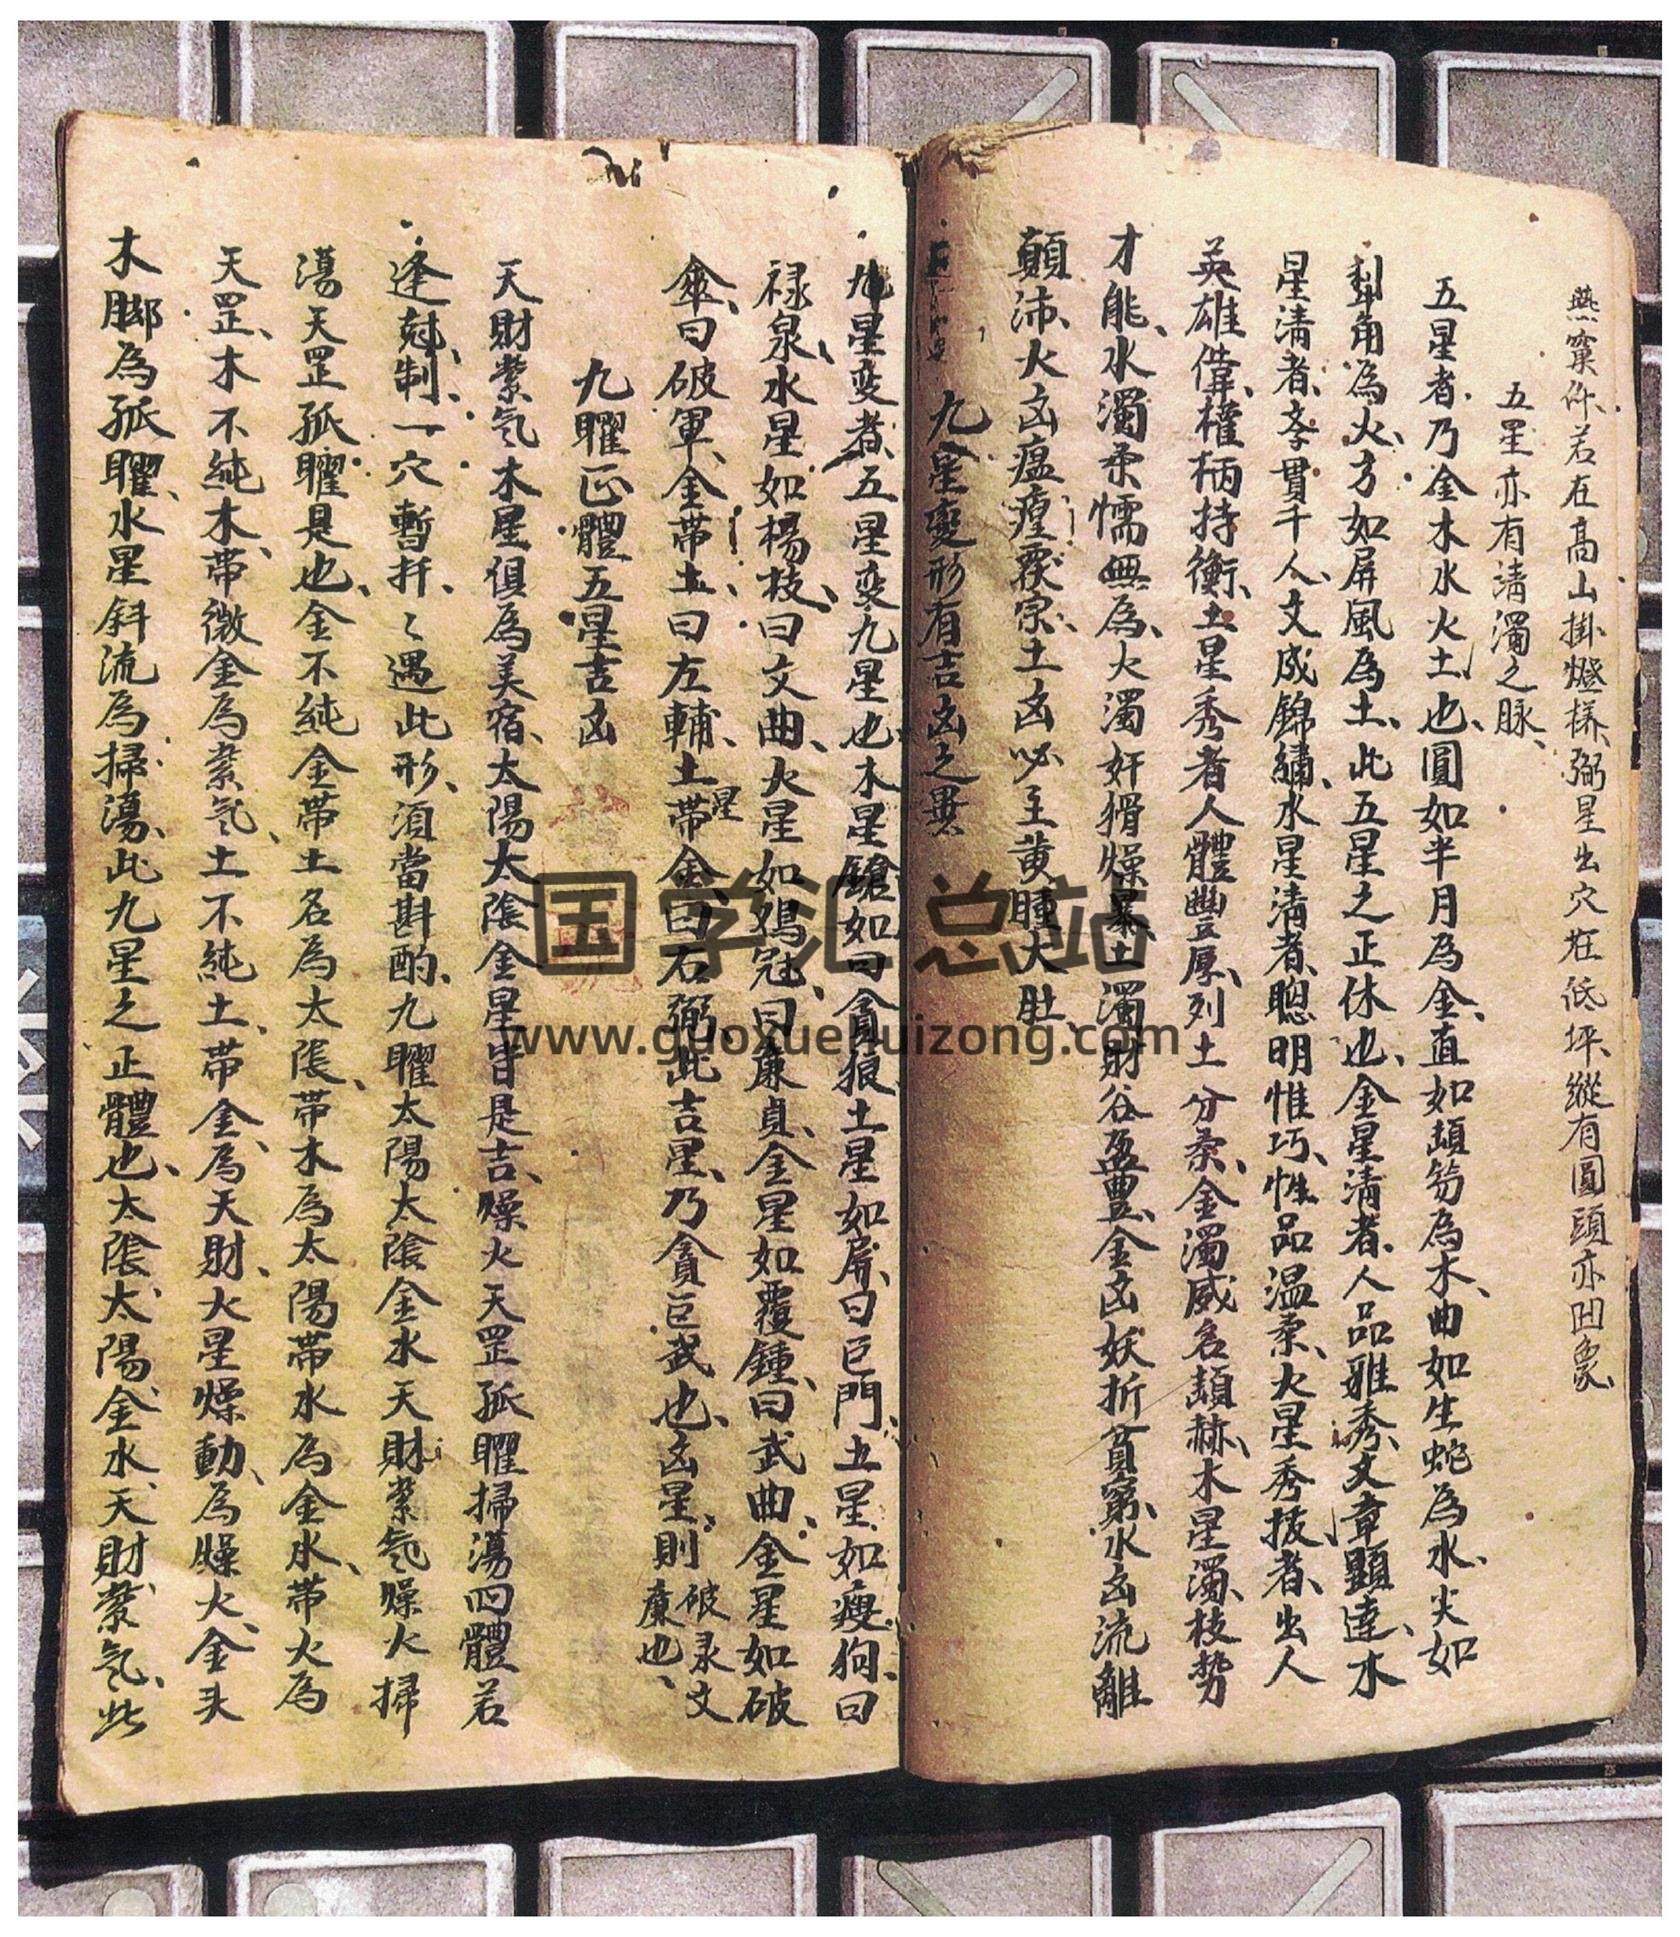 燕窠仵、若在高山掛燈樣、弼星出穴在低坪、縱有圓頭亦凹象、
五星亦有清濁之脉、
五星者、乃金木水火土也、圓如半月為金、直如頓笏為木、曲如生蛇為水、尖如
犁角為火、方如屏風為土、此五星之正体也、金星清者、人品雅秀、文章顯達、木
星清者、孝貫千人、文成錦繡、水星清者、聰明惟巧、性品温柔、火星秀拔者、出人
英雄偉、權柄持衡、土星秀者人體豐厚、列土分茅、金濁威名顕赫、木星濁、枝势
才能、水濁柔懦無為、火濁奸猾燥暴、土濁財谷盈豊、金凶妖折貧窮、水凶流離
顛沛、火凶瘟瘴覆宗、土凶必主黄腫大肚、
九星變形有吉凶之異
九星変者、五星変九星也、木星鎗如曰貪狼、土星如屏、曰巨門、土星如瘦狗、曰
禄泉、水星如楊枝、曰文曲、火星如鴉冠、曰廉貞、金星如覆鍾、曰武曲、金星如破
傘、曰破軍、金帯土、曰左輔、土星帯金曰右弼、此吉星、乃貪巨武也、凶星、則破录文廉也、
九曜正體五星吉凶
天財紫气木星俱為美宿、太陽太陰金星皆是吉、燥火天罡孤曜掃蕩四體若
逢尅制、一穴暫扦、々遇此形、須當斟酌、九曜太陽太陰金水天財紫氣燥火掃
蕩天罡孤曜是也、金不純金帯土名為太陰、帯木為太陽帯水為金水、帯火為
天罡、木不純木、帯微金為紫气、土不純土、帯金、為天財、火星燥動、為燥火、金头
木脚為孤曜、水星斜流為掃蕩、此九星之正體也、太陰、太陽、金水、天財、紫气、此
国学汇总站
www.guoxuehuizong.com